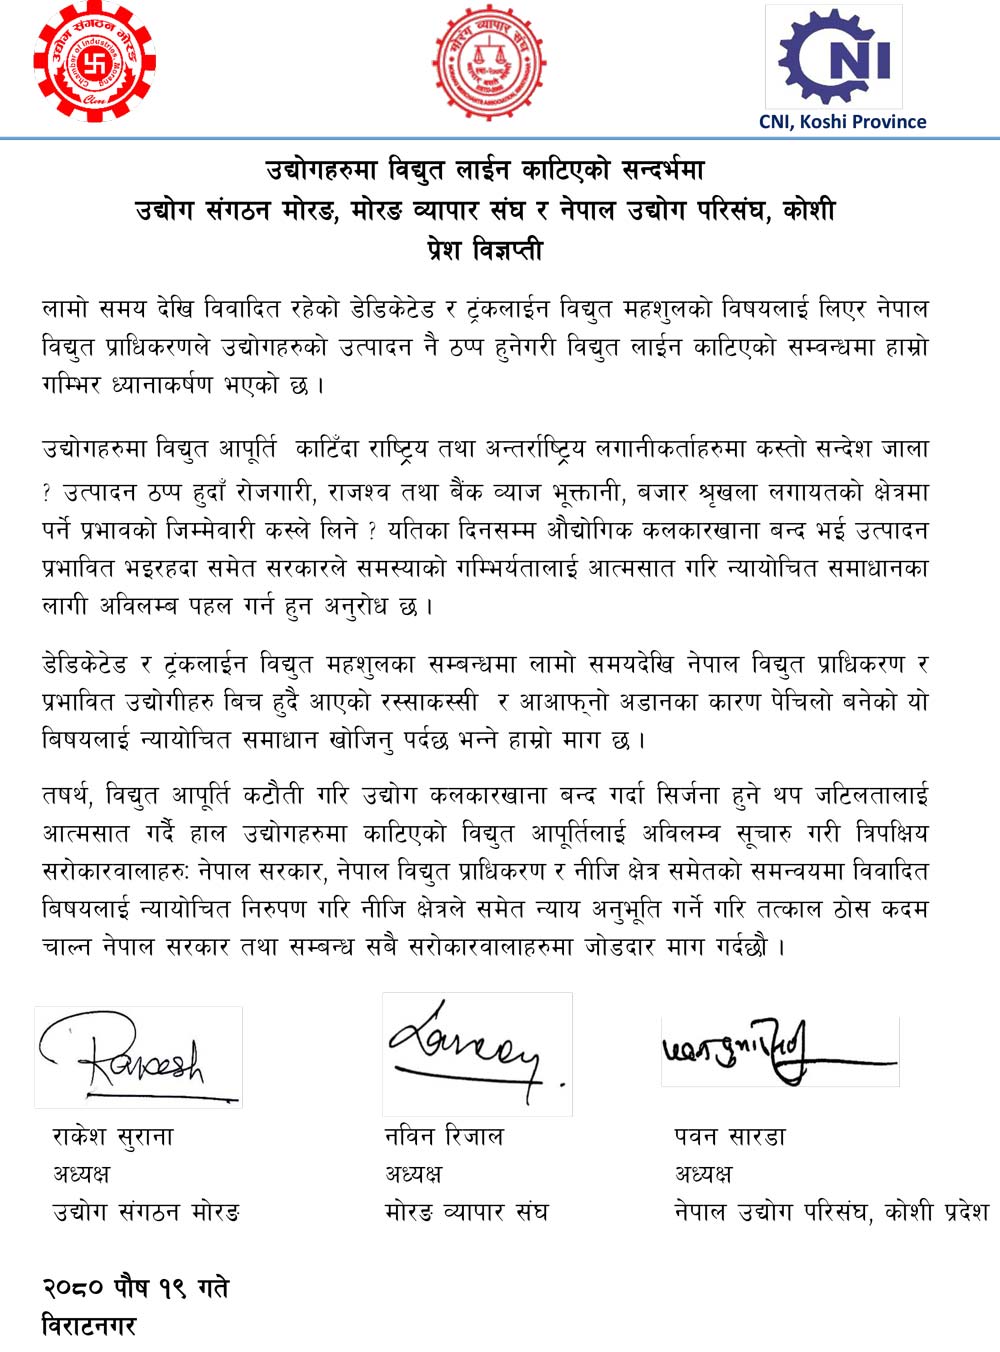 उद्योग संगठन मोरङ
Chamber of Industries, Morang
Cim
मोरङ व्यापार संघ
MORANG MERCHANTS ASSOCIATION, BIRATNAGAR
CNI
CNI, Koshi Province
उद्योगहरुमा विद्युत लाईन काटिएको सन्दर्भमा
उद्योग संगठन मोरङ, मोरङ व्यापार संघ र नेपाल उद्योग परिसंघ, कोशी
प्रेश विज्ञप्ती
लामो समय देखि विवादित रहेको डेडिकेटेड र ट्रंकलाईन विद्युत महशुलको विषयलाई लिएर नेपाल
विद्युत प्राधिकरणले उद्योगहरुको उत्पादन नै ठप्प हुनेगरी विद्युत लाईन काटिएको सम्वन्धमा हाम्रो
गम्भिर ध्यानाकर्षण भएको छ ।
उद्योगहरुमा विद्युत आपूर्ति काटिँदा राष्ट्रिय तथा अन्तर्राष्ट्रिय लगानीकर्ताहरुमा कस्तो सन्देश जाला
? उत्पादन ठप्प हुदाँ रोजगारी, राजश्व तथा बैंक व्याज भूक्तानी, बजार श्रृखला लगायतको क्षेत्रमा
पर्ने प्रभावको जिम्मेवारी कस्ले लिने ? यतिका दिनसम्म औद्योगिक कलकारखाना बन्द भई उत्पादन
प्रभावित भइरहदा समेत सरकारले समस्याको गम्भिर्यतालाई आत्मसात गरि न्यायोचित समाधानका
लागी अविलम्ब पहल गर्न हुन अनुरोध छ ।
डेडिकेटेड र ट्रंकलाईन विद्युत महशुलका सम्बन्धमा लामो समयदेखि नेपाल विद्युत प्राधिकरण र
प्रभावित उद्योगीहरु बिच हुदै आएको रस्साकस्सी र आआफ्‌नो अडानका कारण पेचिलो बनेको यो
बिषयलाई न्यायोचित समाधान खोजिनु पर्दछ भन्ने हाम्रो माग छ ।
तषर्थ, विद्युत आपूर्ति कटौती गरि उद्योग कलकारखाना बन्द गर्दा सिर्जना हुने थप जटिलतालाई
आत्मसात गर्दै हाल उद्योगहरुमा काटिएको विद्युत आपूर्तिलाई अविलम्व सूचारु गरी त्रिपक्षिय
सरोकारवालाहरुः नेपाल सरकार, नेपाल विद्युत प्राधिकरण र नीजि क्षेत्र समेतको समन्वयमा विवादित
बिषयलाई न्यायोचित निरुपण गरि नीजि क्षेत्रले समेत न्याय अनुभूति गर्ने गरि तत्काल ठोस कदम
चाल्न नेपाल सरकार तथा सम्बन्ध सबै सरोकारवालाहरुमा जोडदार माग गर्दछौ ।
Rakesh
राकेश सुराना नविन रिजाल पवन सारडा
अध्यक्ष अध्यक्ष अध्यक्ष
उद्योग संगठन मोरङ मोरङ व्यापार संघ नेपाल उद्योग परिसंघ, कोशी प्रदेश
२०८० पौष १९ गते
विराटनगर